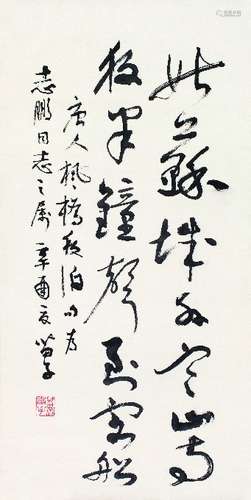 姑苏城外寒山寺
夜半钟声到客船
唐人枫桥夜泊句为
志鹏同志之属 辛酉夏